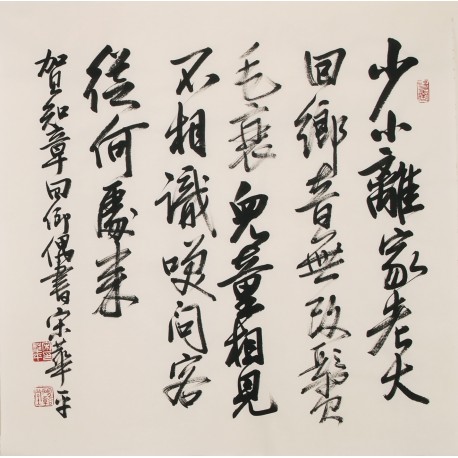 少小離家老大
回鄉音無改鬢
毛衰兒童相見
不相識咲問客
從何處來
賀知章回鄉偶書宋華平